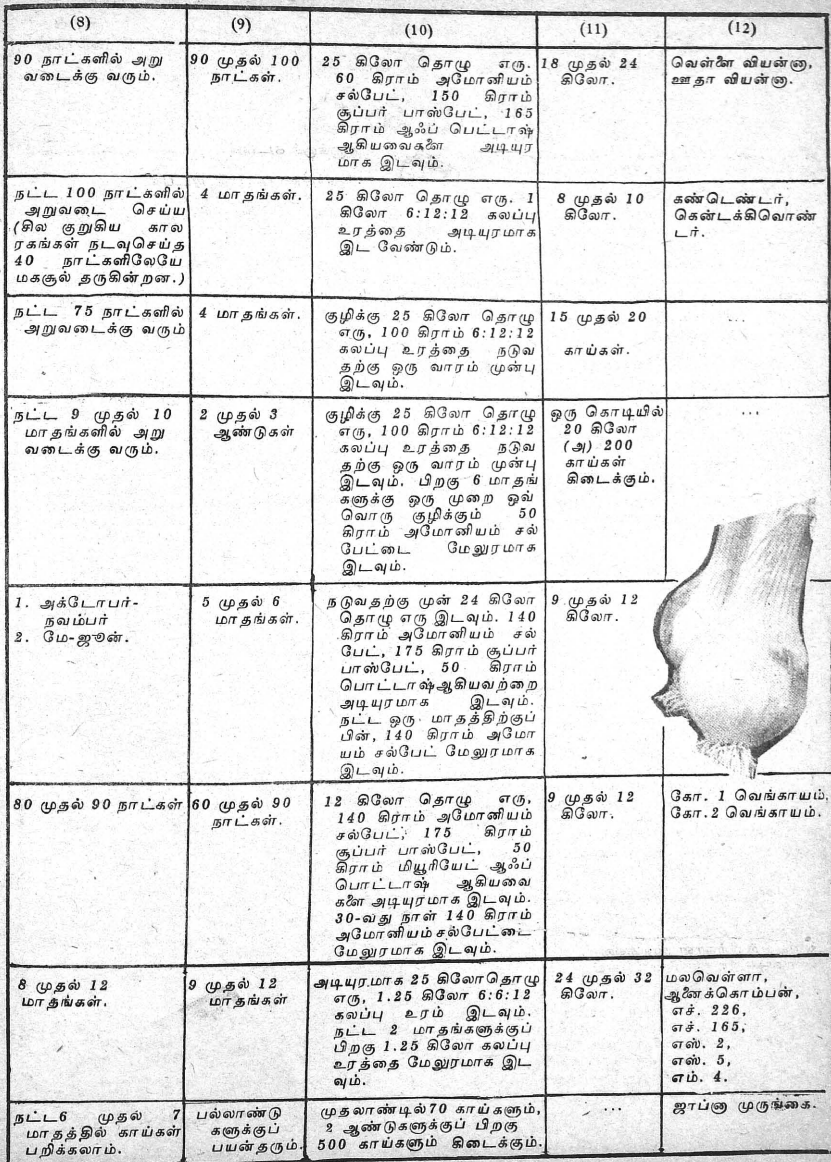 (8)
(9)
(10)
(11)
(12)
90 நாட்களில் அறு
வடைக்கு வரும்.
90 முதல் 100
நாட்கள்.
25 கிலோ தொழு எரு.
60 கிராம் அமோனியம்
சல்பேட், 150 கிராம்
சூப்பர் பாஸ்பேட், 165
கிராம் ஆஃப் பெட்டாஷ்
ஆகியவைகளை அடியுர
மாக இடவும்.
18 முதல் 24
கிலோ.
வெள்ளை வியன்னா,
ஊதா வியன்னா.
நட்ட 100 நாட்களில்
அறுவடை செய்ய
(சில குறுகிய கால
ரகங்கள் நடவுசெய்த
40 நாட்களிலேயே
மகசூல் தருகின்றன.)
4 மாதங்கள்.
25 கிலோ தொழு எரு. 1
கிலோ 6:12:12 கலப்பு
உரத்தை அடியுரமாக
இட வேண்டும்.
8 முதல் 10
கிலோ.
கண்டெண்டர்,
கென்டக்கிவொண்
டர்.
நட்ட 75 நாட்களில்
அறுவடைக்கு வரும்
4 மாதங்கள்.
குழிக்கு 25 கிலோ தொழு
எரு, 100 கிராம் 6:12:12
கலப்பு உரத்தை நடுவ
தற்கு ஒரு வாரம் முன்பு
இடவும்.
15 முதல் 20
காய்கள்.
...
நட்ட 9 முதல் 10
மாதங்களில் அறு
வடைக்கு வரும்.
2 முதல் 3
ஆண்டுகள்
குழிக்கு 25 கிலோ தொழு
எரு, 100 கிராம் 6:12:12
கலப்பு உரத்தை நடுவ
தற்கு ஒரு வாரம் முன்பு
இடவும். பிறகு 6 மாதங்
களுக்கு ஒரு முறை ஒவ்
வொரு குழிக்கும் 50
கிராம் அமோனியம் சல்
பேட்டை மேலுரமாக
இடவும்.
ஒரு கொடியில்
20 கிலோ
(அ) 200
காய்கள்
கிடைக்கும்.
...
1. அக்டோபர்-
நவம்பர்
2. மே-ஜூன்.
5 முதல் 6
மாதங்கள்.
நடுவதற்கு முன் 24 கிலோ
தொழு எரு இடவும். 140
கிராம் அமோனியம் சல்
பேட், 175 கிராம் சூப்பர்
பாஸ்பேட், 50 கிராம்
பொட்டாஷ்ஆகியவற்றை
அடியுரமாக இடவும்.
நட்ட ஒரு மாதத்திற்குப்
பின், 140 கிராம் அமோ
யம் சல்பேட் மேலுரமாக
இடவும்.
9 முதல் 12
கிலோ.
80 முதல் 90 நாட்கள்
60 முதல் 90
நாட்கள்.
12 கிலோ தொழு எரு,
140 கிராம் அமோனியம்
சல்பேட், 175 கிராம்
சூப்பர் பாஸ்பேட், 50
கிராம் மியூரியேட் ஆஃப்
பொட்டாஷ் ஆகியவை
களை அடியுரமாக இடவும்.
30-வது நாள் 140 கிராம்
அமோனியம் சல்பேட்டை
மேலுரமாக இடவும்.
9 முதல் 12
கிலோ.
கோ. 1 வெங்காயம்,
கோ.2 வெங்காயம்.
8 முதல் 12
மாதங்கள்.
9 முதல் 12
மாதங்கள்
அடியுரமாக 25 கிலோதொழு
எரு, 1.25 கிலோ 6:6:12
கலப்பு உரம் இடவும்.
நட்ட 2 மாதங்களுக்குப்
பிறகு 1.25 கிலோ கலப்பு
உரத்தை மேலுரமாக இட
வும்.
24 முதல் 32
கிலோ.
மலவெள்ளா,
ஆனைக்கொம்பன்,
எச். 226,
எச். 165,
எஸ். 2,
எஸ். 5,
எம். 4.
நட்ட6 முதல் 7
மாதத்தில் காய்கள்
பறிக்கலாம்.
பல்லாண்டு
களுக்குப்
பயன்தரும்.
முதலாண்டில்70 காய்களும்,
2 ஆண்டுகளுக்குப் பிறகு
500 காய்களும் கிடைக்கும்.
...
ஜாப்னா முருங்கை.